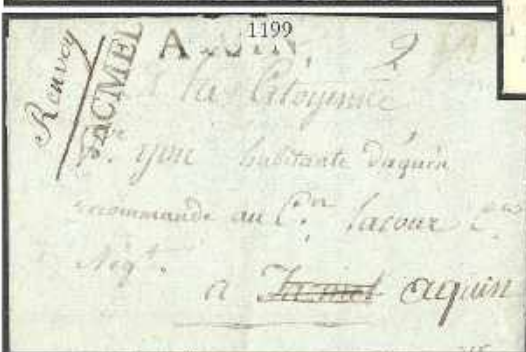 1199
Renvoy
JACMEL
AQUIN
2
a la Citoyenne
Vve. yon habitante daquin
recommandé au Cen. Lacour
Negt.
a Jacmel aquin